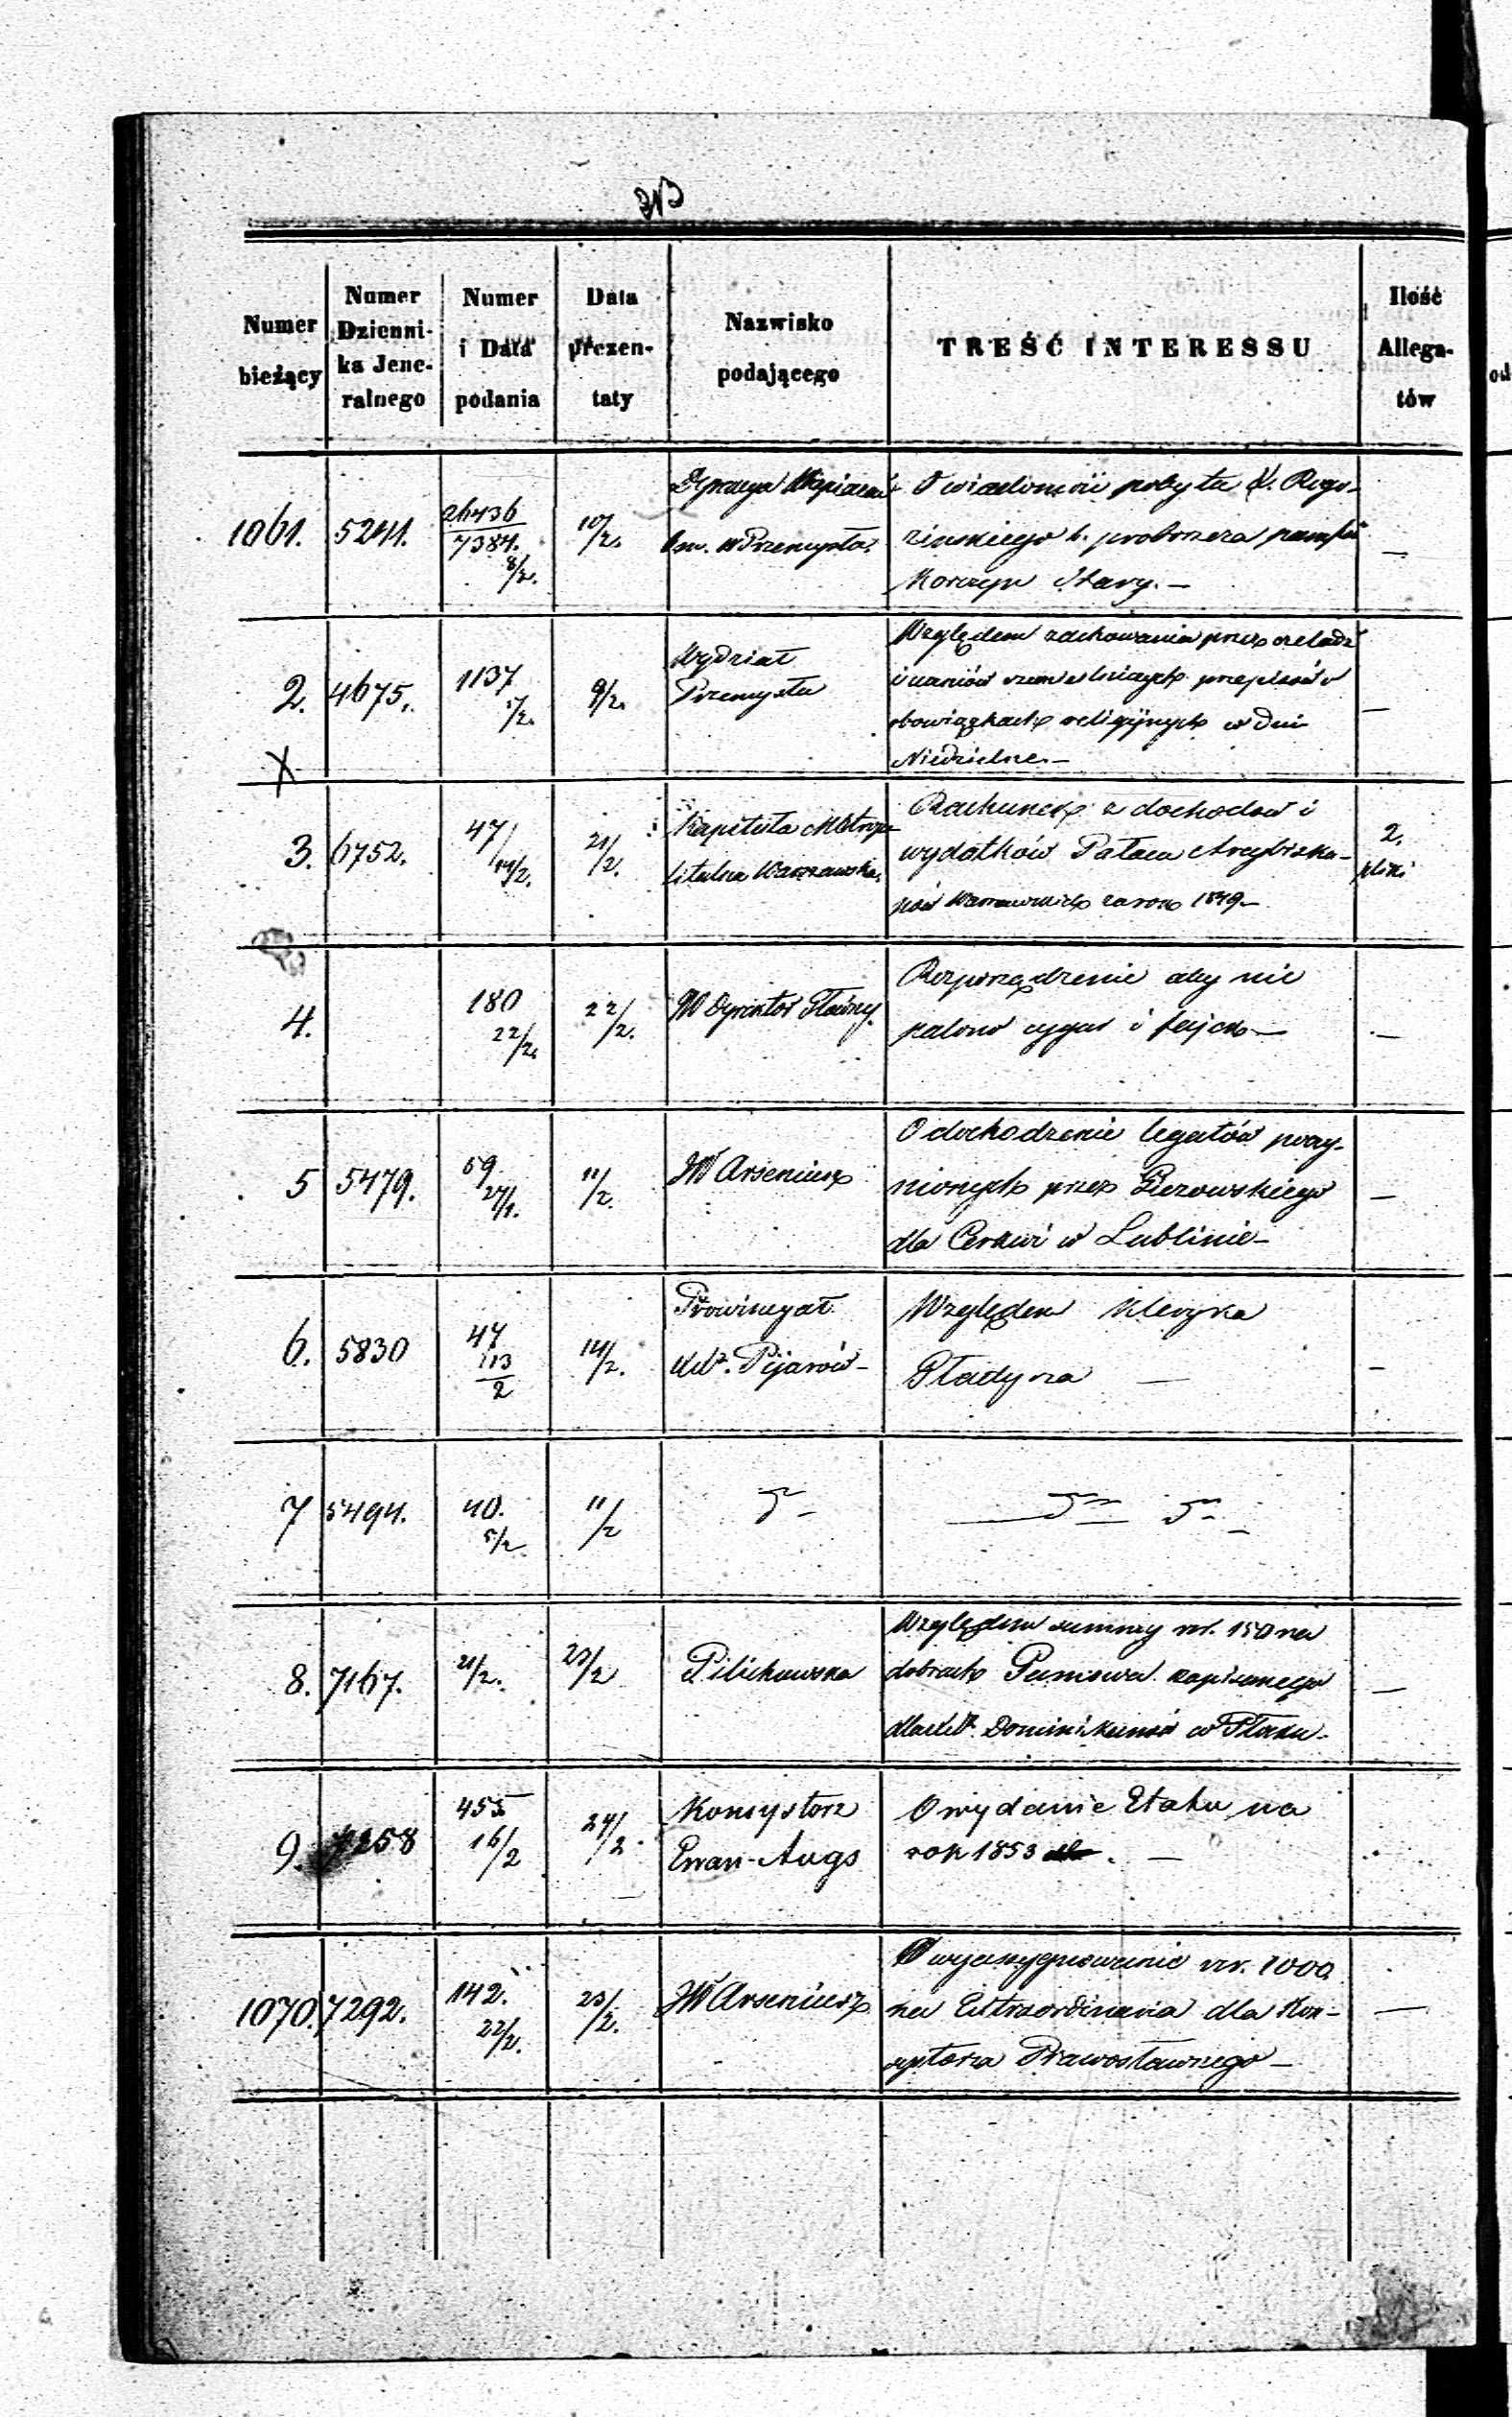 Numer bieżący
Numer Dzienni-
ka Jene-
ralnego
Numer
i Data
podania
Data
prezen-
taty
Nazwisko
podającego
TREŚĆ INTERESSU
Ilość
Allega-
tów
1061. 5241. 26436
7384.
8/2. 10/2.
w Przemyśle
O wiadomości pobytu X. Rogo-
zinskiego b. proboszcza parafii
Korczyn Stary. —
2. 4675. 1137
1/2. 9/2.
Wydział
Przemysłu
Względem zachowania przez czeladź
i uczniów rzemieślniczych przepisów o
obowiązkach religijnych w Dni
Niedzielne. —
X
3. 6752. 47/
14/2. 21/2.
Kapituła Metropo-
litalna Warszawska.
Rachunek z dochodów i
wydatków Pałacu Arcybisku-
pów Warszawskich za rok 1849 —
2.
pliki
4. 180
22/2. 22/2.
JW Dyrektor Główny
Rozporządzenie aby nie
palono cygar i fajek —
5 5479. 59
27/1. 11/2.
JW Arseniusz
O dochodzenie legatów poczy-
nionych przez
dla Cerkwi w Lublinie —
6. 5830 47
113
2 14/2.
Prowincyał
Pijarów —
Względem Kleryka
7 5494. 40.
5/2 11/2
8. 7167. 21/2. 23/2
Pilichowska
Względem summy rs. 150 na
dobrach zapisanego
Dominikanów w Płocku —
9. 7258 455
16/2 24/2
Konsystorz
Ewan-Augs
O wydanie Etatu na
rok 1853 . —
1070. 7292. 142.
22/2. 23/2.
JW Arseniusz
O wyassygnowanie rsr. 1000
na Extraordinaria dla Kon-
systorza Prawosławnego —